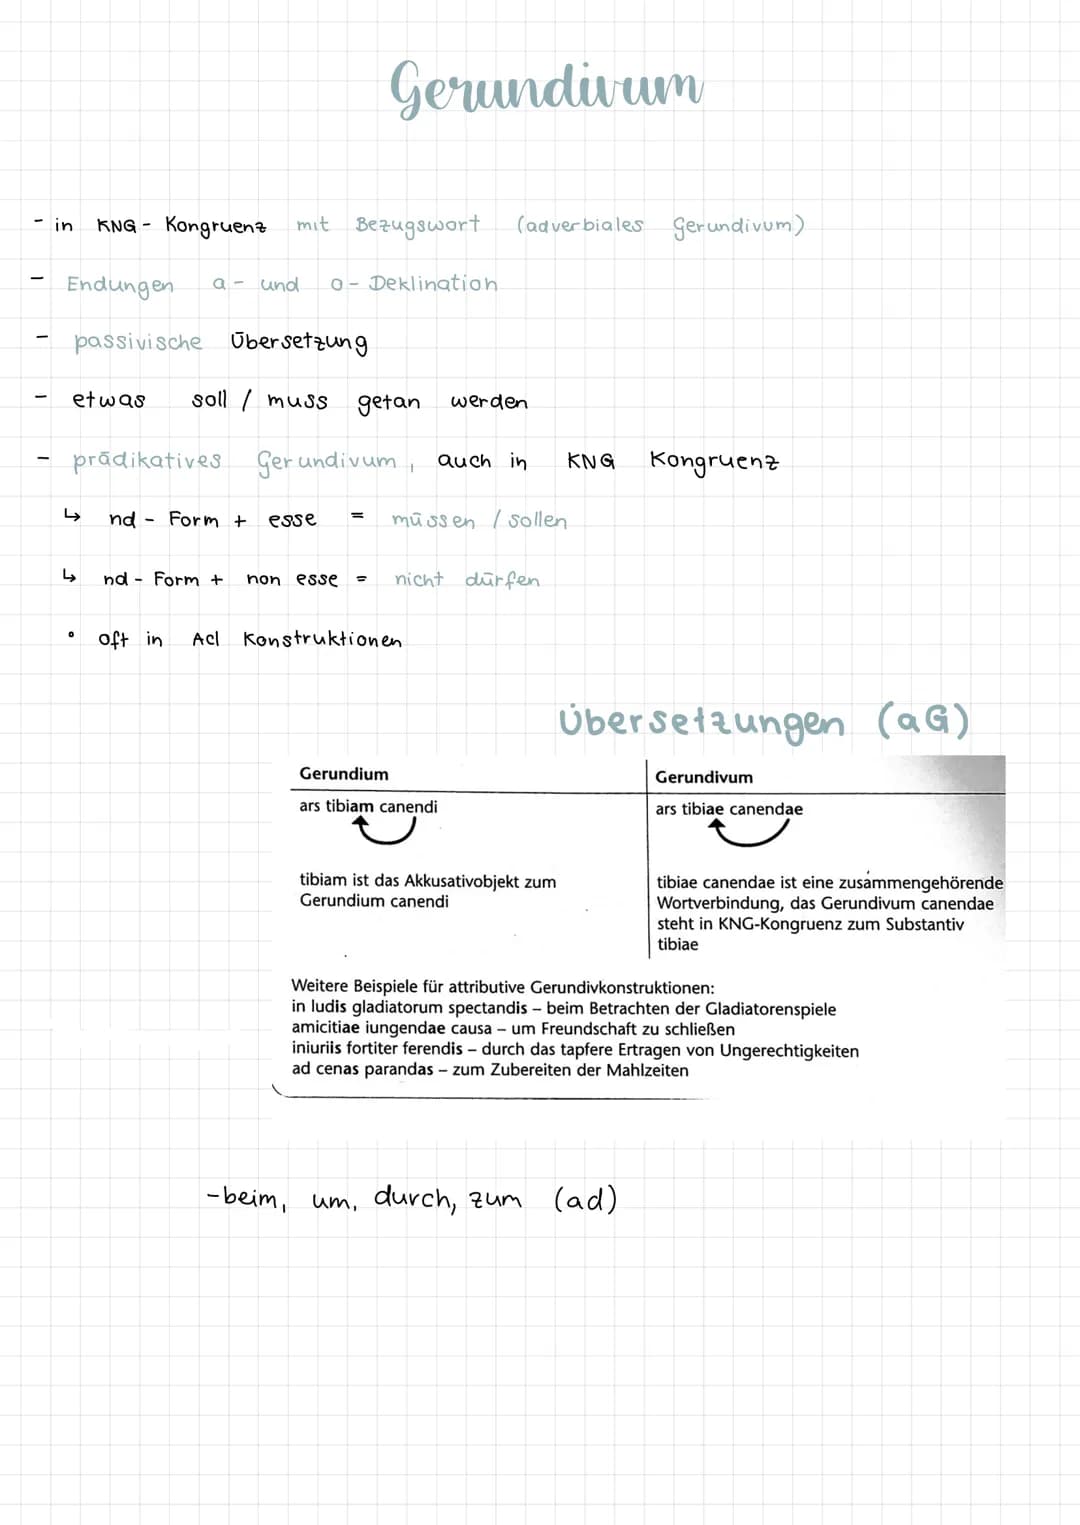 Gerundivum
- in KNG - Kongruenz mit Bezugswort (adverbiales Gerundivum)
- Endungen a- und o- Deklination
- passivische Übersetzung
- etwas soll / muss getan werden
- prädikatives Gerundivum, auch in KNG Kongruenz
↳ nd - Form + esse = müssen / sollen
↳ nd - Form + non esse = nicht dürfen
° oft in AcI Konstruktionen
Übersetzungen (aG)
Gerundium
ars tibiam canendi
tibiam ist das Akkusativobjekt zum
Gerundium canendi
Gerundivum
ars tibiae canendae
tibiae canendae ist eine zusammengehörende
Wortverbindung, das Gerundivum canendae
steht in KNG-Kongruenz zum Substantiv
tibiae
Weitere Beispiele für attributive Gerundivkonstruktionen:
in ludis gladiatorum spectandis – beim Betrachten der Gladiatorenspiele
amicitiae iungendae causa – um Freundschaft zu schließen
iniuriis fortiter ferendis – durch das tapfere Ertragen von Ungerechtigkeiten
ad cenas parandas – zum Zubereiten der Mahlzeiten
- beim, um, durch, zum (ad)